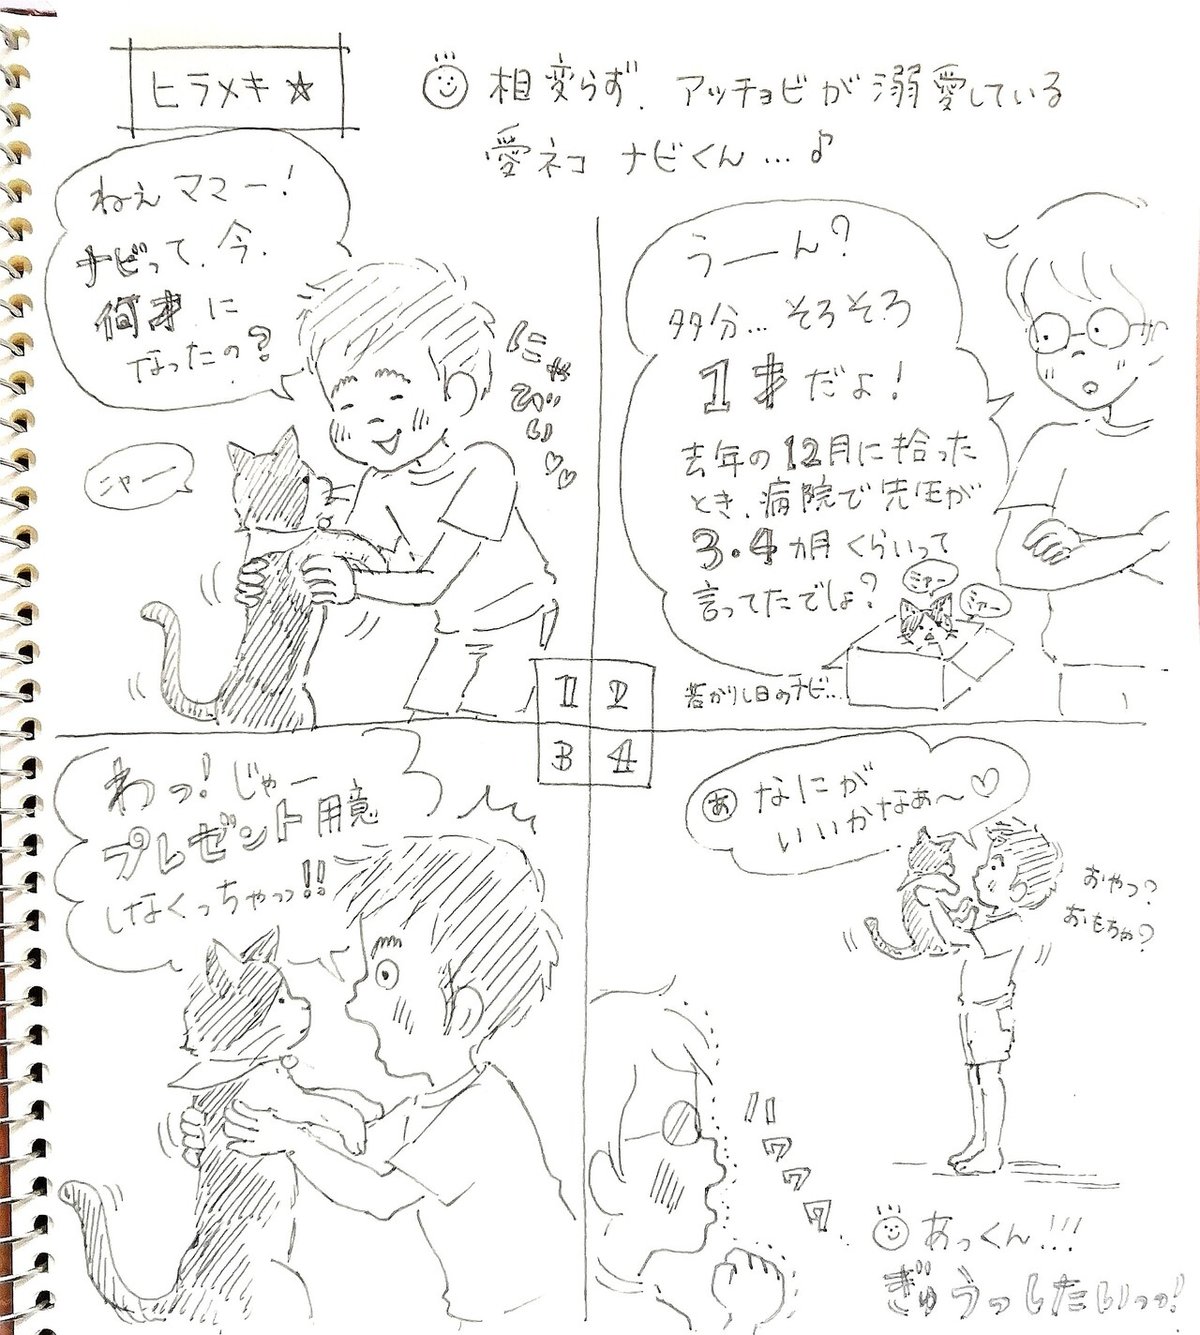 ヒラメキ☆
相変らず、アッチョビが溺愛している
愛ネコ ナビくん…♪
ねえママー!
ナビって、今、
何才に
なったの?
にゃ
びい
♡♡
ニャー
うーん?
多分…そろそろ
1才だよ!
去年の12月に拾った
とき、病院で先生が
3・4ヵ月くらいって
言ってたでしょ?
ミャー
ミャー
若かりし日のナビ…
1 2
3 4
わっ!じゃー
プレゼント用意
しなくっちゃっっ!!
あ なにが
いいかなぁ〜♡
おやつ?
おもちゃ?
ハワワワワ
あっくん!!!
ぎゅうっしたいっっ!